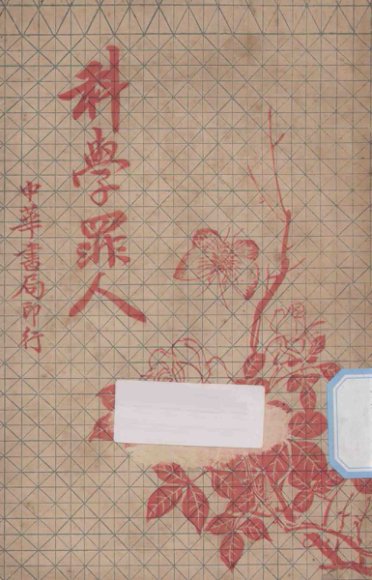 科學罪人
中華書局印行